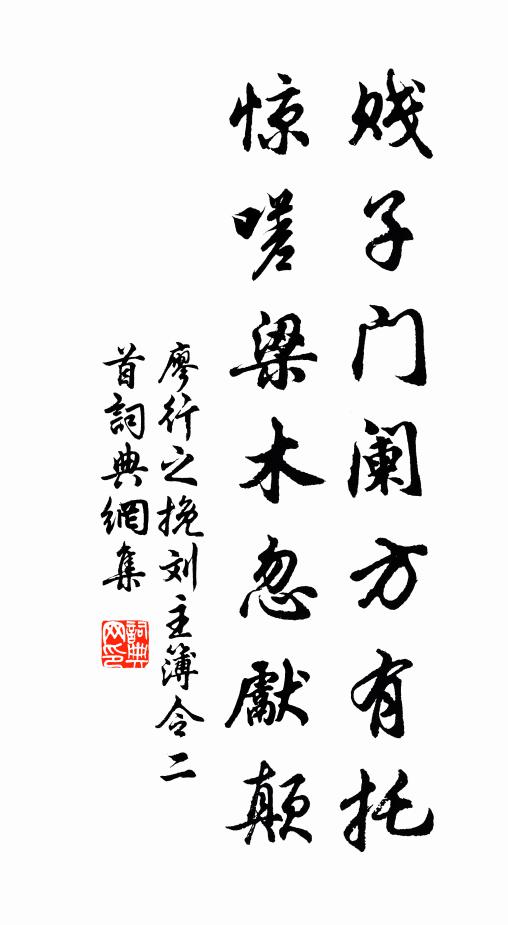 贱子门阑方有托
惊嗟梁木忽獻颠
廖行之挽刘主簿令二
首詞典網集
詞典网印